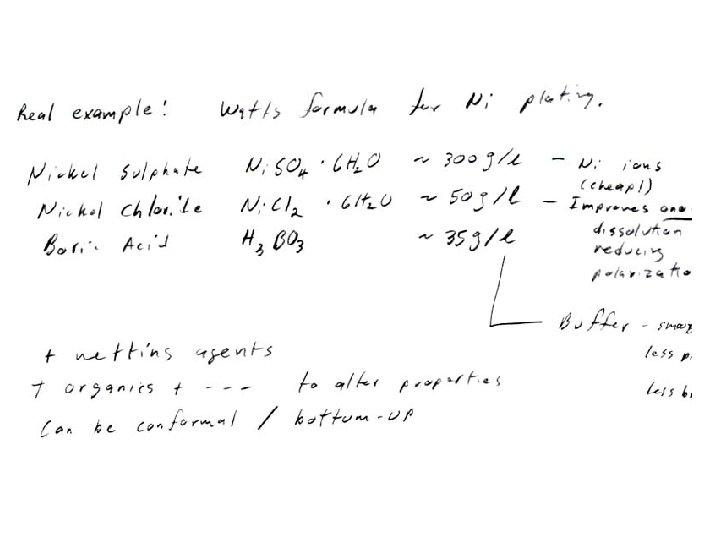 Real example! Watts formula for Ni plating.
Nickel Sulphate NiSO4 · 6H2O ~ 300 g/l – Ni ions
(cheap!)
Nickel Chloride NiCl2 · 6H2O ~ 50 g/l – Improves
dissolution
reducing
Boric Acid H3BO3 ~ 35 g/l
Buffer -
less
less
+ wetting agents
+ organics + --- to alter properties
Can be conformal / bottom-up